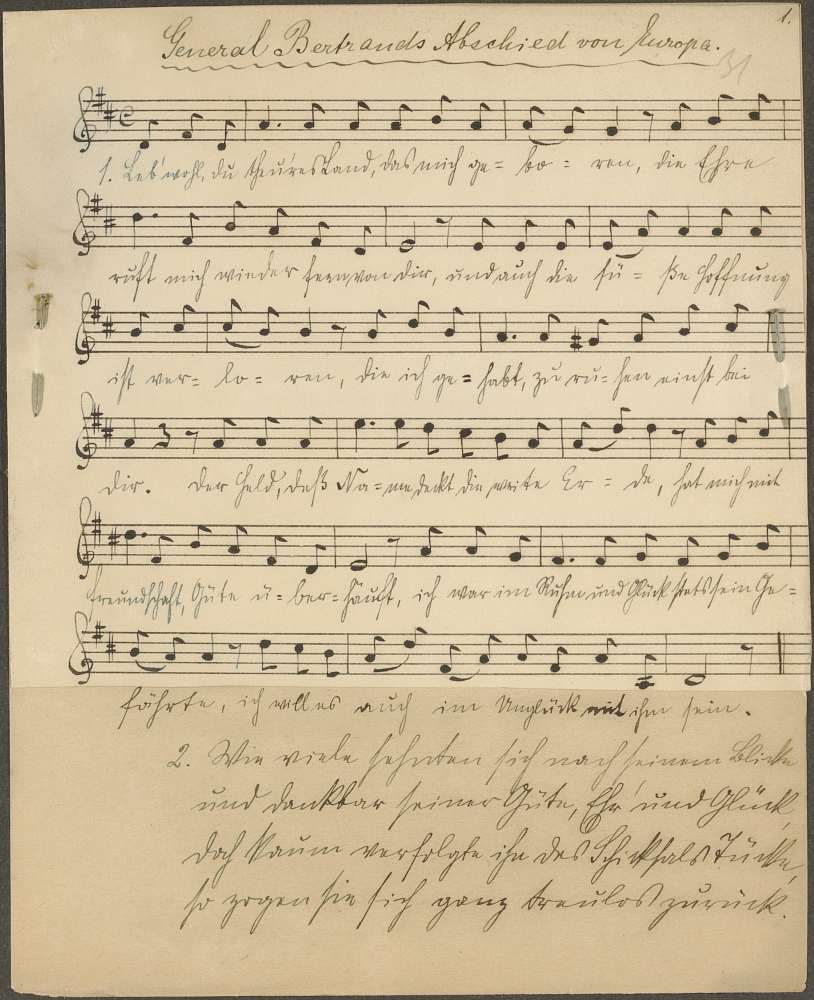 1.
General Bertrands Abschied von Europa.
31
1. Leb' wohl, du theures Land, das mich ge- bo- ren, die Ehre
ruft mich wieder fern von dir, und auch die sü- ße Hoffnung
ist ver- lo- ren, die ich ge- habt, zu ru- hen einst bei
dir. Der Held, deß Na- me deckt die weite Er- de, hat mich mit
Freundschaft, Güte ü- ber- häuft, ich war im Ruhm und Glück stets sein Ge-
fährte, ich will es auch im Unglück mit ihm sein.
2. Wie viele sehnten sich nach seinem Blicke
und dankbar seiner Güte, Ehr' und Glück,
doch kaum verfolgte ihn des Schicksals Tücke,
so zogen sie sich ganz treulos zurück.